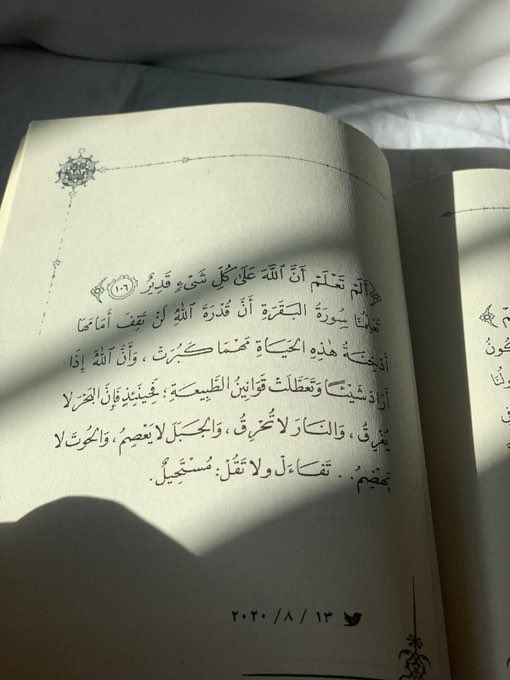 ﴿ أَلَمْ تَعْلَمْ أَنَّ ٱللَّهَ عَلَىٰ كُلِّ شَىْءٍ قَدِيرٌ ١٠٦ ﴾
تُعَلِّمُنَا سُورَةُ البَقَرَةِ أَنَّ قُدْرَةَ اللهِ لَنْ تَقِفَ أَمَامَهَا
هٰذِهِ الحَيَاةِ مَهْمَا كَبُرَتْ ، وَأَنَّ اللهَ إِذَا
أَرَادَ شَيْئًا وَتَعَطَّلَتْ قَوَانِينُ الطَّبِيعَةِ ؛ فَحِينَئِذٍ فَإِنَّ البَحْرَ لا
يُغْرِقُ ، وَالنَّارَ لا تُحْرِقُ ، وَالجَبَلَ لا يَعْصِمُ ، وَالحُوتَ لا
يَهْضِمُ .. تَفَاءَلْ ولا تَقُلْ : مُسْتَحِيلٌ.
١٣ / ٨ / ٢٠٢٠